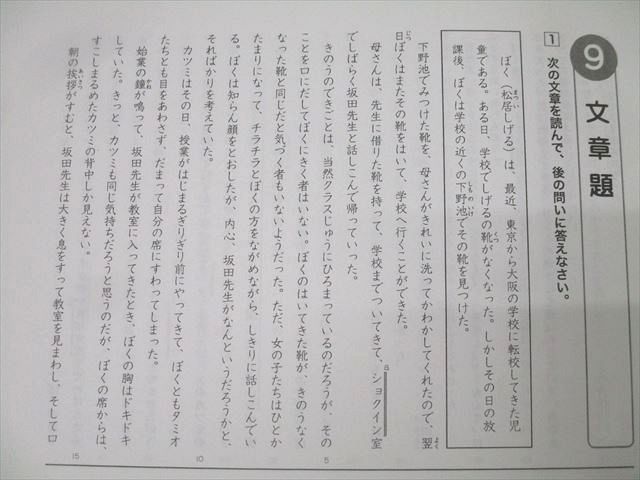 9 文章題
1 次の文章を読んで、後の問いに答えなさい。
ぼく（松居しげる）は、最近、東京から大阪の学校に転校してきた児
童である。ある日、学校でしげるの靴がなくなった。しかしその日の放
課後、ぼくは学校の近くの下野池でその靴を見つけた。
下野池でみつけた靴を、母さんがきれいに洗ってかわかしてくれたので、翌
日ぼくはまたその靴をはいて、学校へ行くことができた。
母さんは、先生に借りた靴を持って、学校までついてきて、ショクイン室
でしばらく坂田先生と話しこんで帰っていった。
きのうのできごとは、当然クラスじゅうにひろまっているのだろうが、その
ことを口にだしてぼくにきく者はいない。ぼくのはいてきた靴が、きのうなく
なった靴と同じだと気づく者もいないようだった。ただ、女の子たちはひとか
たまりになって、チラチラとぼくの方をながめながら、しきりに話しこんでい
る。ぼくは知らん顔をとおしたが、内心、坂田先生がなんというだろうかと、
そればかりを考えていた。
カツミはその日、授業がはじまるぎりぎり前にやってきて、ぼくともタミオ
たちとも目をあわさず、だまって自分の席にすわってしまった。
始業の鐘が鳴って、坂田先生が教室に入ってきたとき、ぼくの胸はドキドキ
していた。きっと、カツミも同じ気持ちだろうと思うのだが、ぼくの席からは、
すこしまるめたカツミの背中しか見えない。
朝の挨拶がすむと、坂田先生は大きく息をすって教室を見まわし、そして口
5
10
15